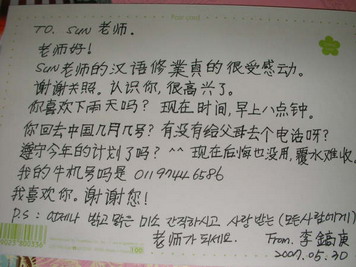 TO. SUN 老师.
老师好!
SUN 老师的汉语修業真的很受感动.
谢谢关照. 认识你, 很高兴了.
你喜欢下雨天吗? 现在时间, 早上八点钟.
你回去中国几月几号? 有没有给父母去个电话呀?
遵守今年的计划了吗? ^^ 现在后悔也没用, 覆水难收.
我的手机号吗是 01199446586
我喜欢你. 谢谢您!
P.S : 언제나 밝고 맑은 미소 간직하시고 사랑받는 (모든사람에게)
老师가 되세요. From. 李鎬庚
2007.05.30
100